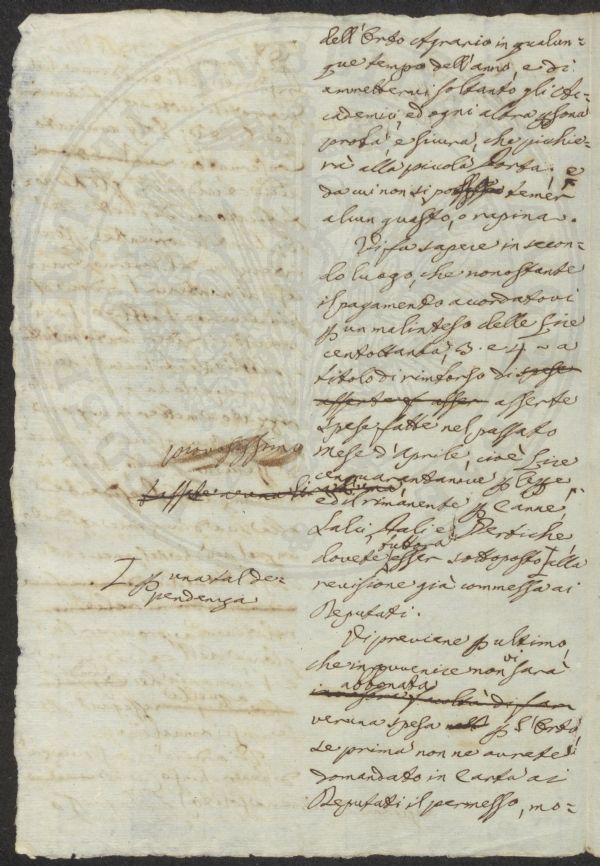 dell'Orto Agrario in qualun-
que tempo dell'anno, e di
ammettervi soltanto gli Ac-
cademici, ed ogni altra psona
proba, e sicura, che picchie-
rà alla picciola Porta, e
da cui non si possa temer
alcun guasto, o rapina.
Vi fa sapere in secon-
do luogo, che nonostante
il pagamento accordatovi
p un malinteso delle Lire
centottanta, 3. e 4 a
titolo di rimborso di spese
asserte asserte
spese fatte nel passato
mese d'Aprile, cioè Lire
cinquarantanove p legge
ed il rimanente p Canne,
Salci, Pali e Pertiche,
dovete tuttora esser sottoposto alla
revisione già commessa ai
Deputati.
Vi previene p ultimo,
che in avvenire non vi sarà
abbonata
veruna spesa p l'Orto,
se prima non ne avrete
domandato in Carta ai
Deputati il permesso, mo-
piovosissimo
p una tal de-
pendenza